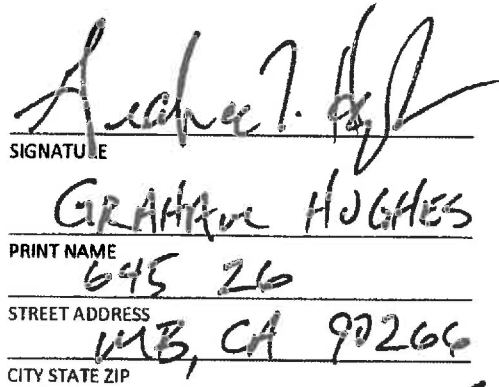 SIGNATURE
GRAHAM HUGHES
PRINT NAME
645 26
STREET ADDRESS
MB, CA 90266
CITY STATE ZIP